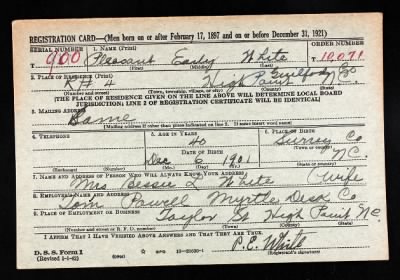 REGISTRATION CARD—(Men born on or after February 17, 1897 and on or before December 31, 1921)
SERIAL NUMBER 1. NAME (Print) ORDER NUMBER
900 Pleasant Early White 10,071
(First) (Middle) (Last)
2. PLACE OF RESIDENCE (Print)
Rt 4 High Point Guilford N.C.
(Number and street) (Town, township, village, or city) (County) (State)
[THE PLACE OF RESIDENCE GIVEN ON THE LINE ABOVE WILL DETERMINE LOCAL BOARD
JURISDICTION; LINE 2 OF REGISTRATION CERTIFICATE WILL BE IDENTICAL]
3. MAILING ADDRESS
Same
[Mailing address if other than place indicated on line 2. If same insert word same]
4. TELEPHONE 5. AGE IN YEARS 6. PLACE OF BIRTH
40 Surry Co
DATE OF BIRTH (Town or county)
Dec 6 1901 N.C.
(Exchange) (Number) (Mo.) (Day) (Yr.) (State or country)
7. NAME AND ADDRESS OF PERSON WHO WILL ALWAYS KNOW YOUR ADDRESS
Mrs. Bessie L White (wife
8. EMPLOYER'S NAME AND ADDRESS
Tom Powell Myrtle Desk Co
9. PLACE OF EMPLOYMENT OR BUSINESS
Taylor St High Point N.C.
(Number and street or R. F. D. number) (Town) (County) (State)
I AFFIRM THAT I HAVE VERIFIED ABOVE ANSWERS AND THAT THEY ARE TRUE.
P.E. White
D. S. S. Form 1
(Revised 1-1-42) (over) GPO 16—21630-1 (Registrant's signature)